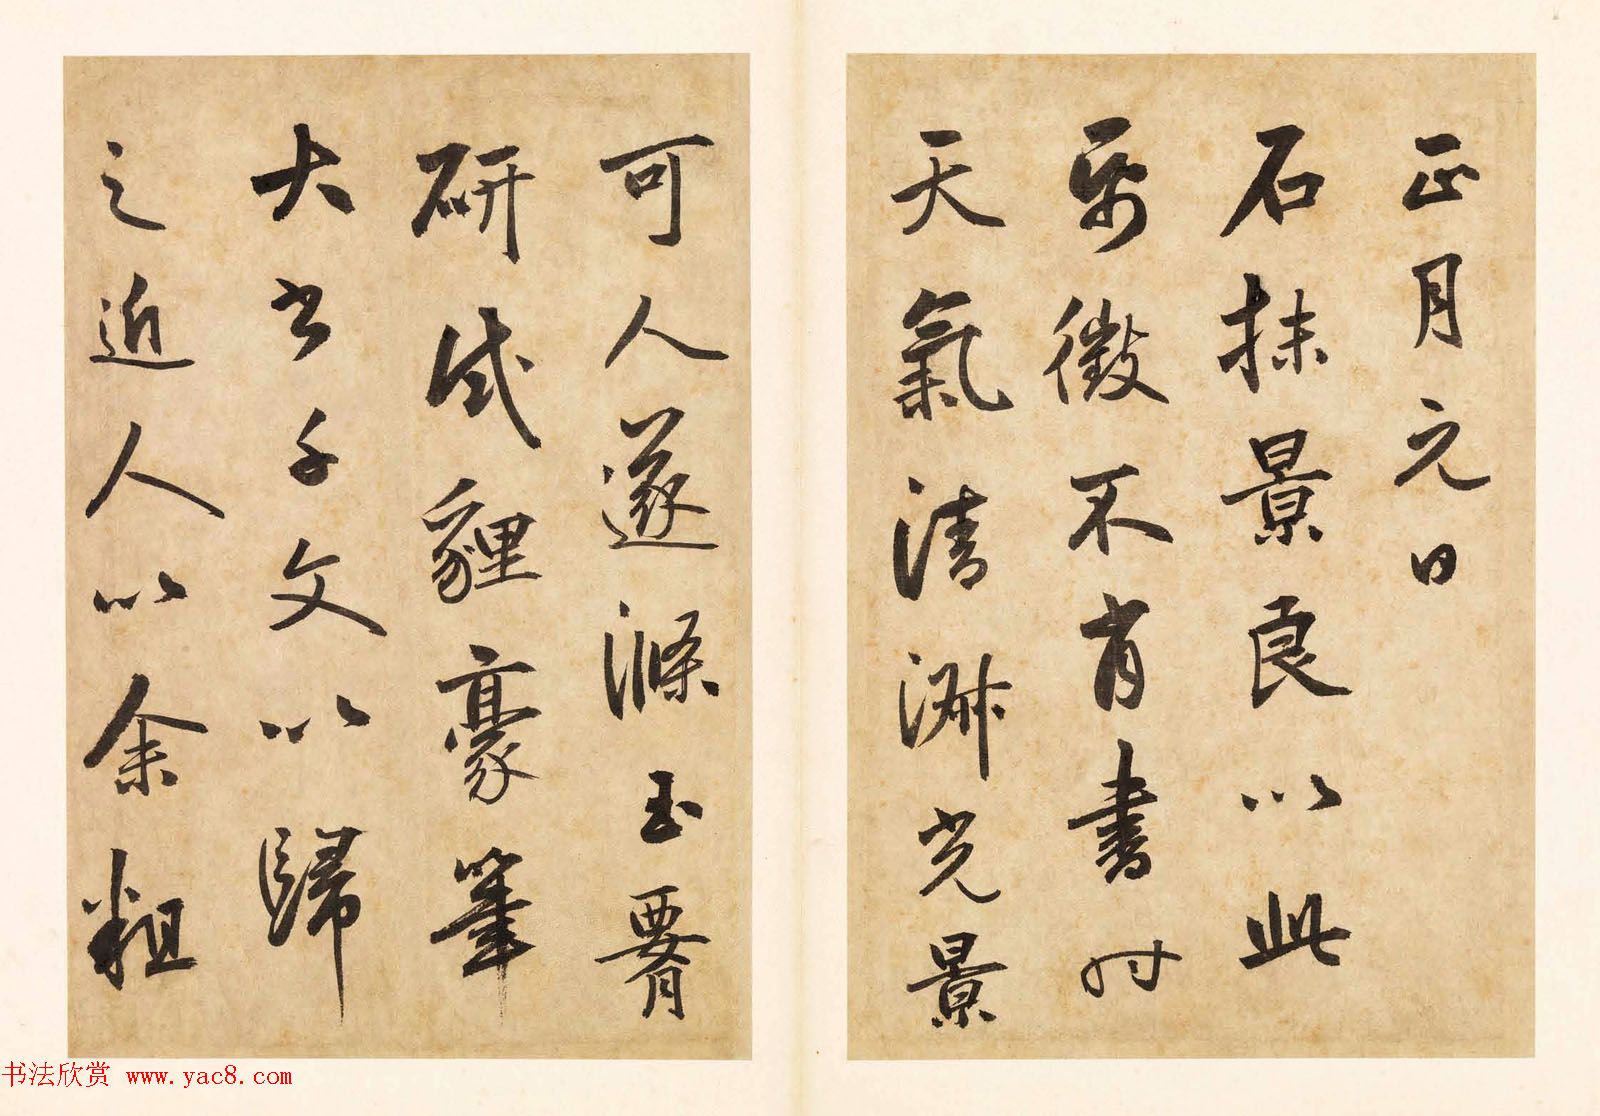 正月元日
石抹景良以此
帋徵不肖書时
天氣清淵光景
可人遂滌玉䯋
研试貍豪筆
大书千文以歸
之近人以余粗
书法欣赏 www.yac8.com